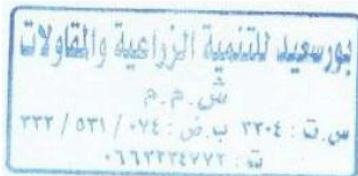 بورسعيد للتنمية الزراعية والمقاولات
ش.م.م
س.ت : ٢٢٠٤ ب.ض : ٠٧٤ / ٥٣١ / ٢٢٢
ت : ٠٦٦٣٢٣٤٧٧٢